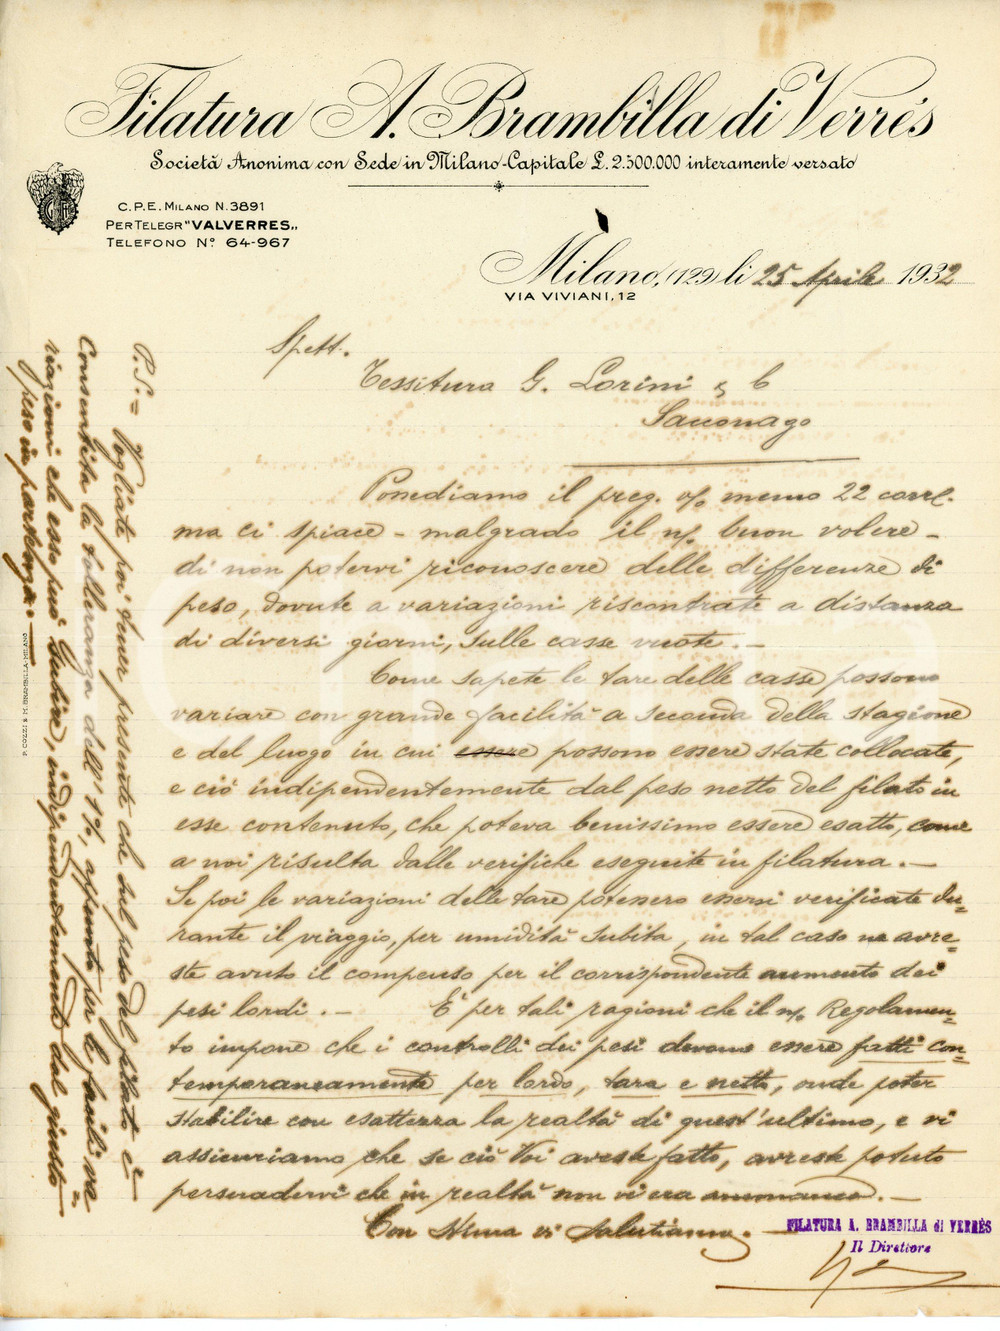 Filatura A. Brambilla di Verrés
Società Anonima con Sede in Milano-Capitale £. 2.500.000 interamente versato
C.P.E. MILANO N. 3891
PER TELEGR "VALVERRES„
TELEFONO Nº 64-967
Milano, (129) li 25 Aprile 1932
VIA VIVIANI, 12
Spett.
Tessitura G. Lorini & C
Sacconago
Possediamo il preg. v/ memo 22 corr.
ma ci spiace - malgrado il n/ buon volere -
di non potervi riconoscere delle differenze di
peso, dovute a variazioni riscontrate a distanza
di diversi giorni, sulle casse vuote. -
Come sapete le tare delle casse possono
variare con grande facilità a seconda della stagione
e del luogo in cui essere possono essere state collocate,
e ciò indipendentemente dal peso netto del filato in
esse contenuto, che poteva benissimo essere esatto, come
a noi risulta dalle verifiche eseguite in filatura. -
Se poi le variazioni delle tare potessero essersi verificate du-
rante il viaggio, per umidità subita, in tal caso ne avre-
ste avuto il compenso per il corrispondente aumento dei
pesi lordi. - E' per tali ragioni che il n/ Regolamen-
to impone che i controlli dei pesi devono essere fatti con-
temporaneamente per lordo, tara e netto, onde poter
stabilire con esattezza la realtà di quest'ultimo, e vi
assicuriamo che se ciò Voi aveste fatto, avreste potuto
persuadervi che in realtà non vi era ammanco. -
Con stima vi salutiamo. -
FILATURA A. BRAMBILLA di VERRÈS
Il Direttore
P.S. = Vogliate poi tener presente che sul peso del filato è
consentita la tolleranza dell'1%, appunto per le facili va=
riazioni che esso può subire, indipendentemente dal giusto
peso in partenza. -
P. COZZI & M. BRAMBILLA-MILANO